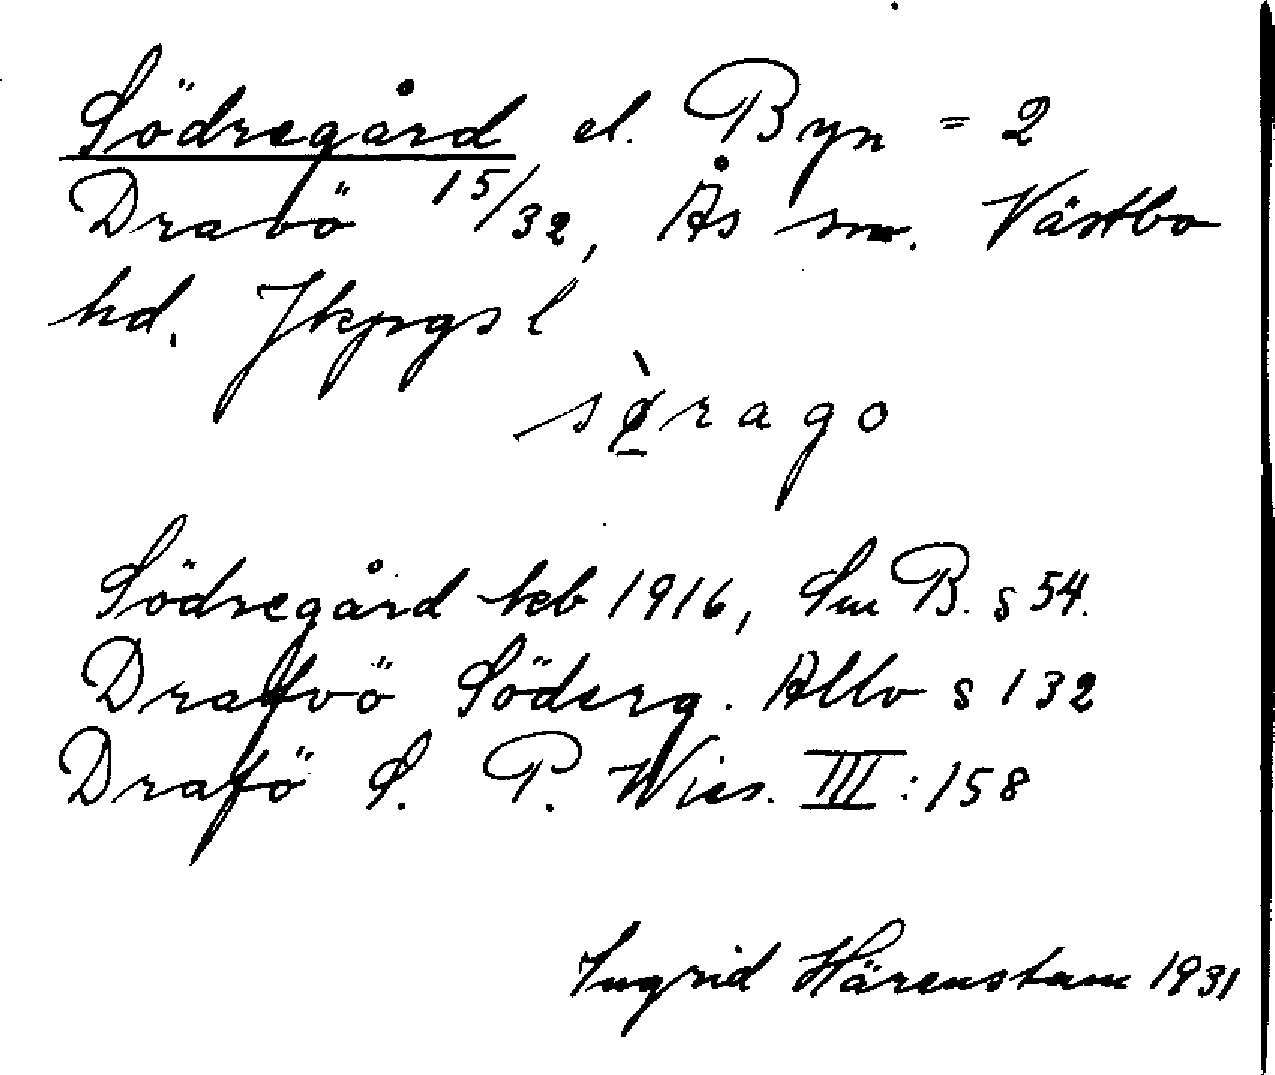 Södregård el. Byn = 2
Dravö 15/32, Ås sn. Västbo
hd. Jkpgs l
sø̠̀rago
Södregård keb 1916, Sm B. s 54.
Drafvö Söderg. Allv s 132
Drafö S. P. Wies. III:158
Ingrid Härenstam 1931